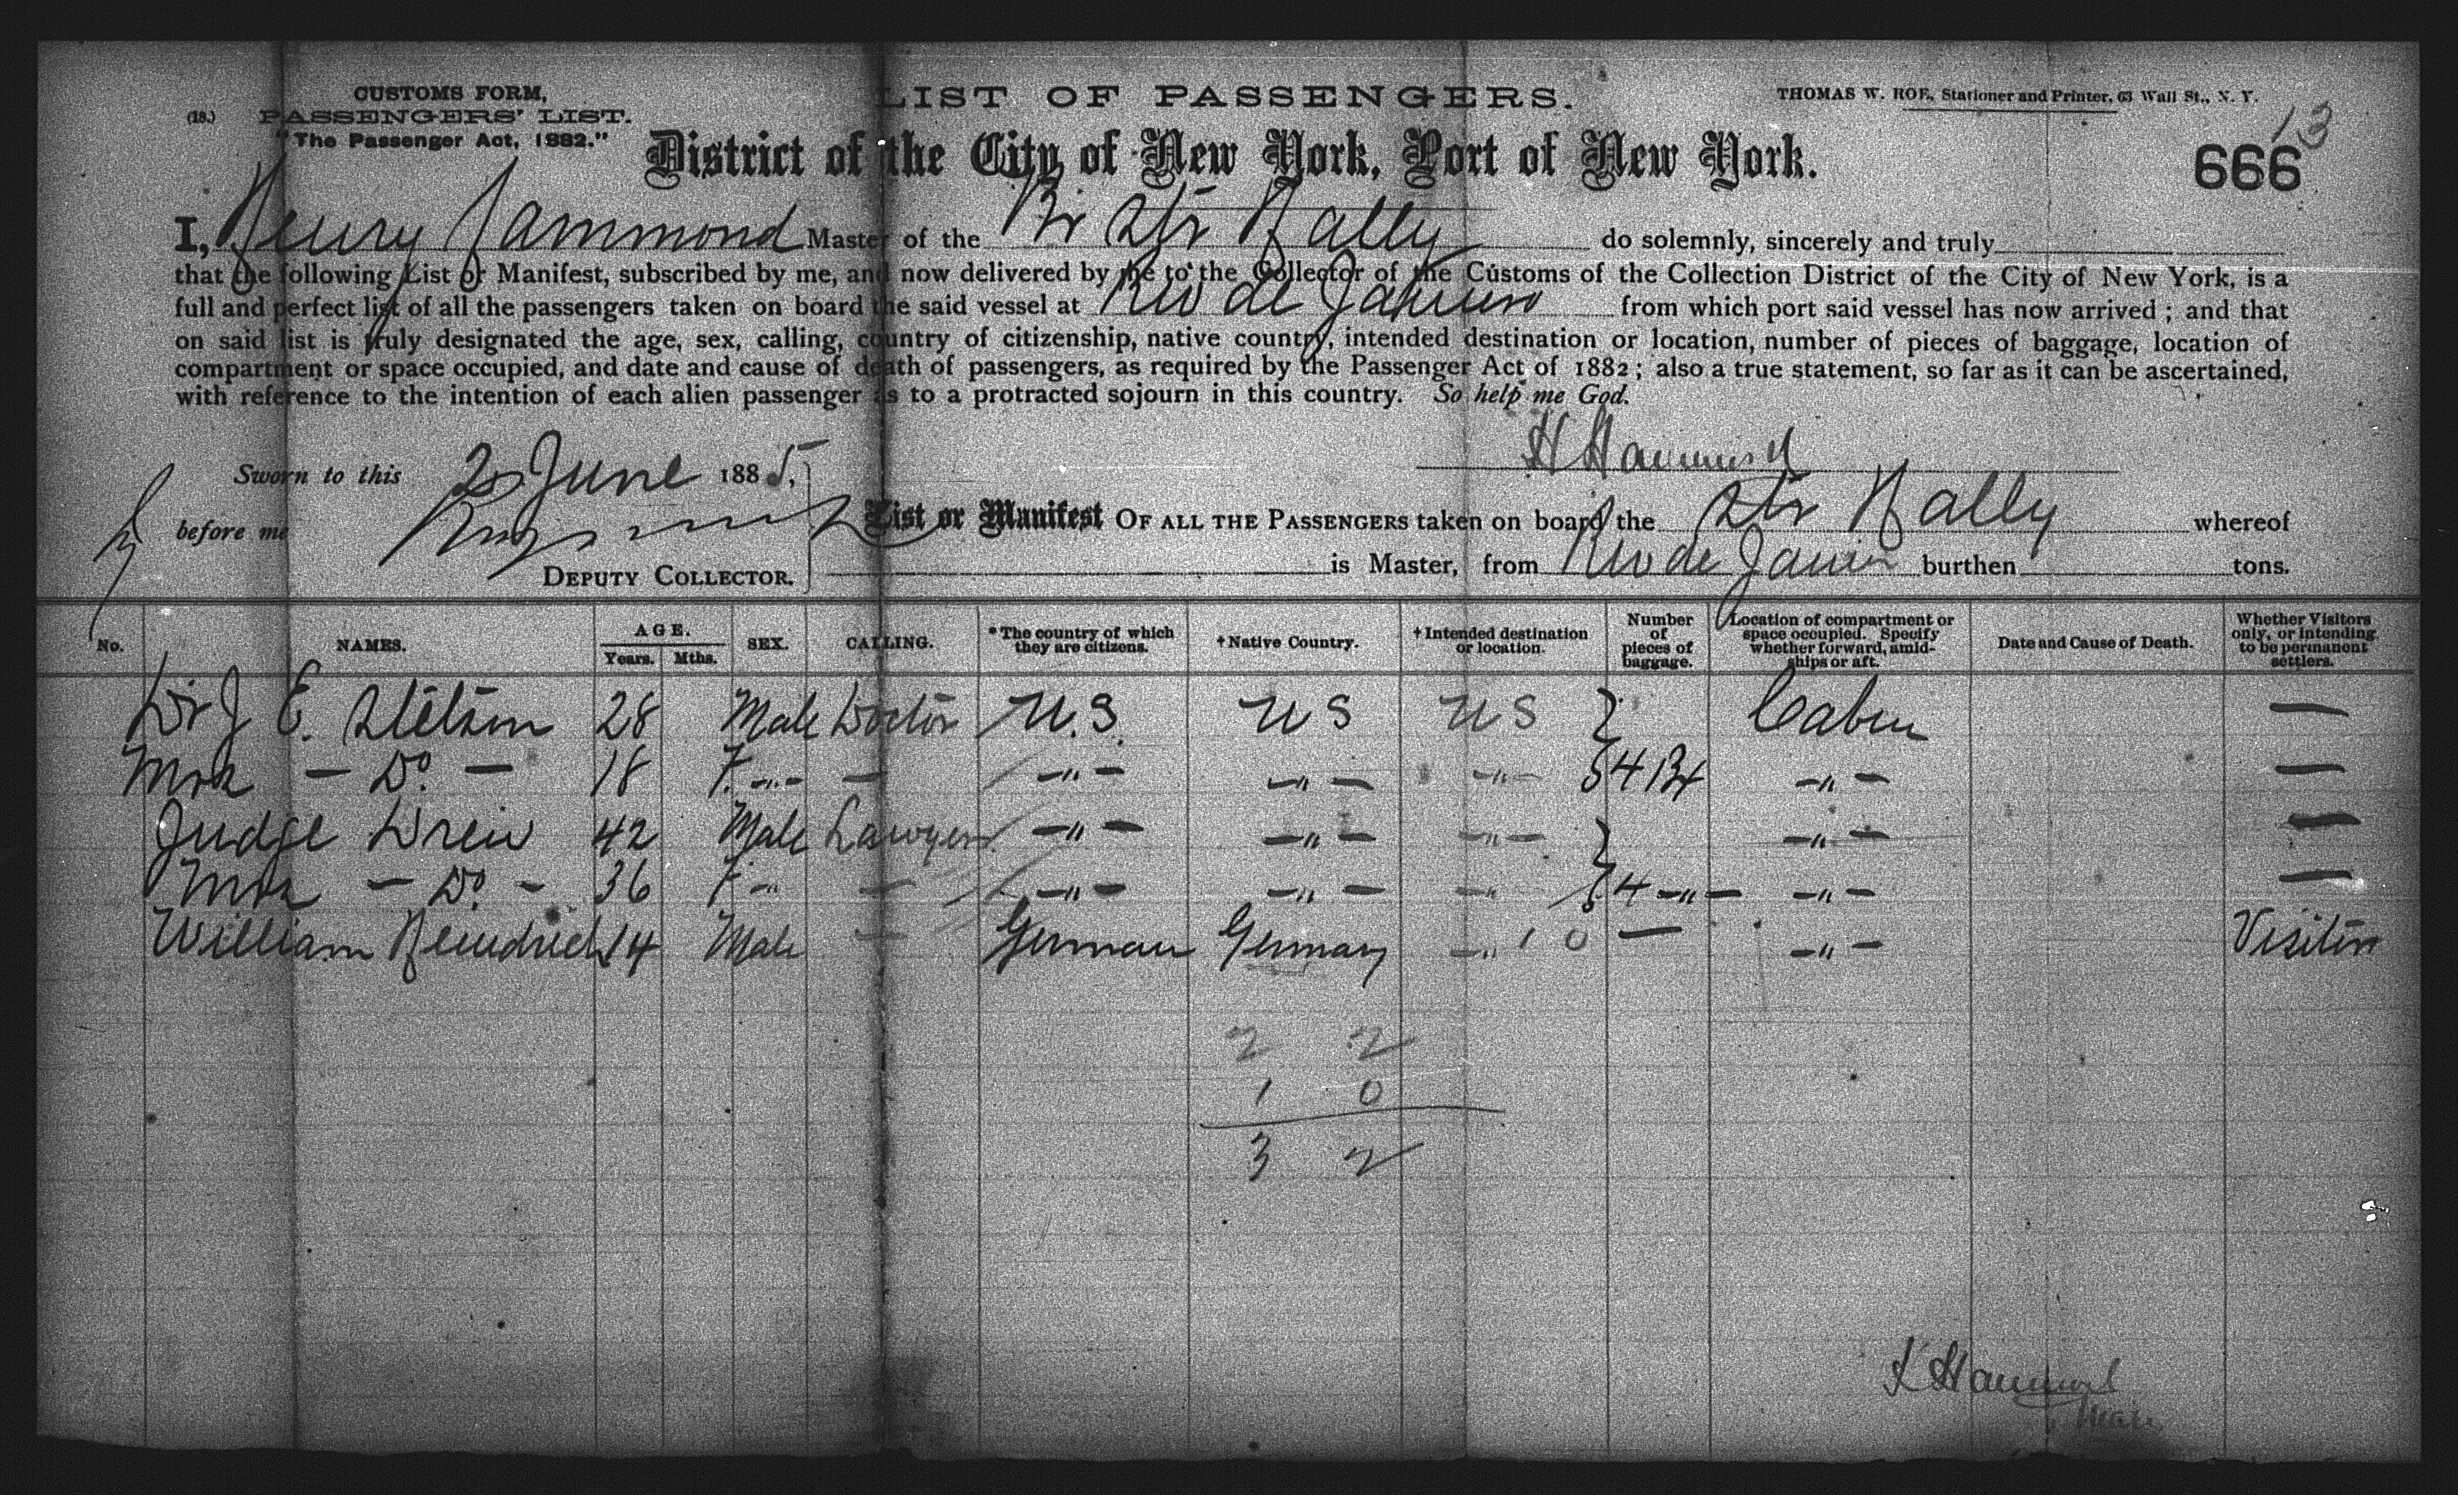 CUSTOMS FORM,
(18.) PASSENGERS' LIST.
"The Passenger Act, 1882."
LIST OF PASSENGERS.
THOMAS W. ROE, Stationer and Printer, 63 Wall St., N. Y.
13
District of the City of New York, Port of New York.
666
I, Henry Hammond Master of the Br Str do solemnly, sincerely and truly
that the following List or Manifest, subscribed by me, and now delivered by me to the Collector of the Customs of the Collection District of the City of New York, is a
full and perfect list of all the passengers taken on board the said vessel at Rio de Janeiro from which port said vessel has now arrived ; and that
on said list is truly designated the age, sex, calling, country of citizenship, native country, intended destination or location, number of pieces of baggage, location of
compartment or space occupied, and date and cause of death of passengers, as required by the Passenger Act of 1882 ; also a true statement, so far as it can be ascertained,
with reference to the intention of each alien passenger as to a protracted sojourn in this country. So help me God.
H Hammond
Sworn to this June 1885,
before me
DEPUTY COLLECTOR.
List or Manifest OF ALL THE PASSENGERS taken on board the Str whereof
is Master, from Rio de Janeiro burthen tons.
No. NAMES. AGE. Years. Mths. SEX. CALLING. *The country of which they are citizens. †Native Country. †Intended destination or location. Number of pieces of baggage. Location of compartment or space occupied. Specify whether forward, amidships or aft. Date and Cause of Death. Whether Visitors only, or intending to be permanent settlers.
Dr J E. Stetson 28 Male Doctor U.S. U S U S Cabin —
Mrs — Do. — 18 F. -"- — -"- -"- -"- 4 -"- —
Judge Drew 42 Male Lawyer -"- -"- -"- -"- —
Mrs — Do. — 36 F -"- — -"- -"- -"- 4 -"- -"- —
William 14 Male — German Germany -"- 1 0 — -"- Visitor
2 2
1 0
3 2
H Hammond